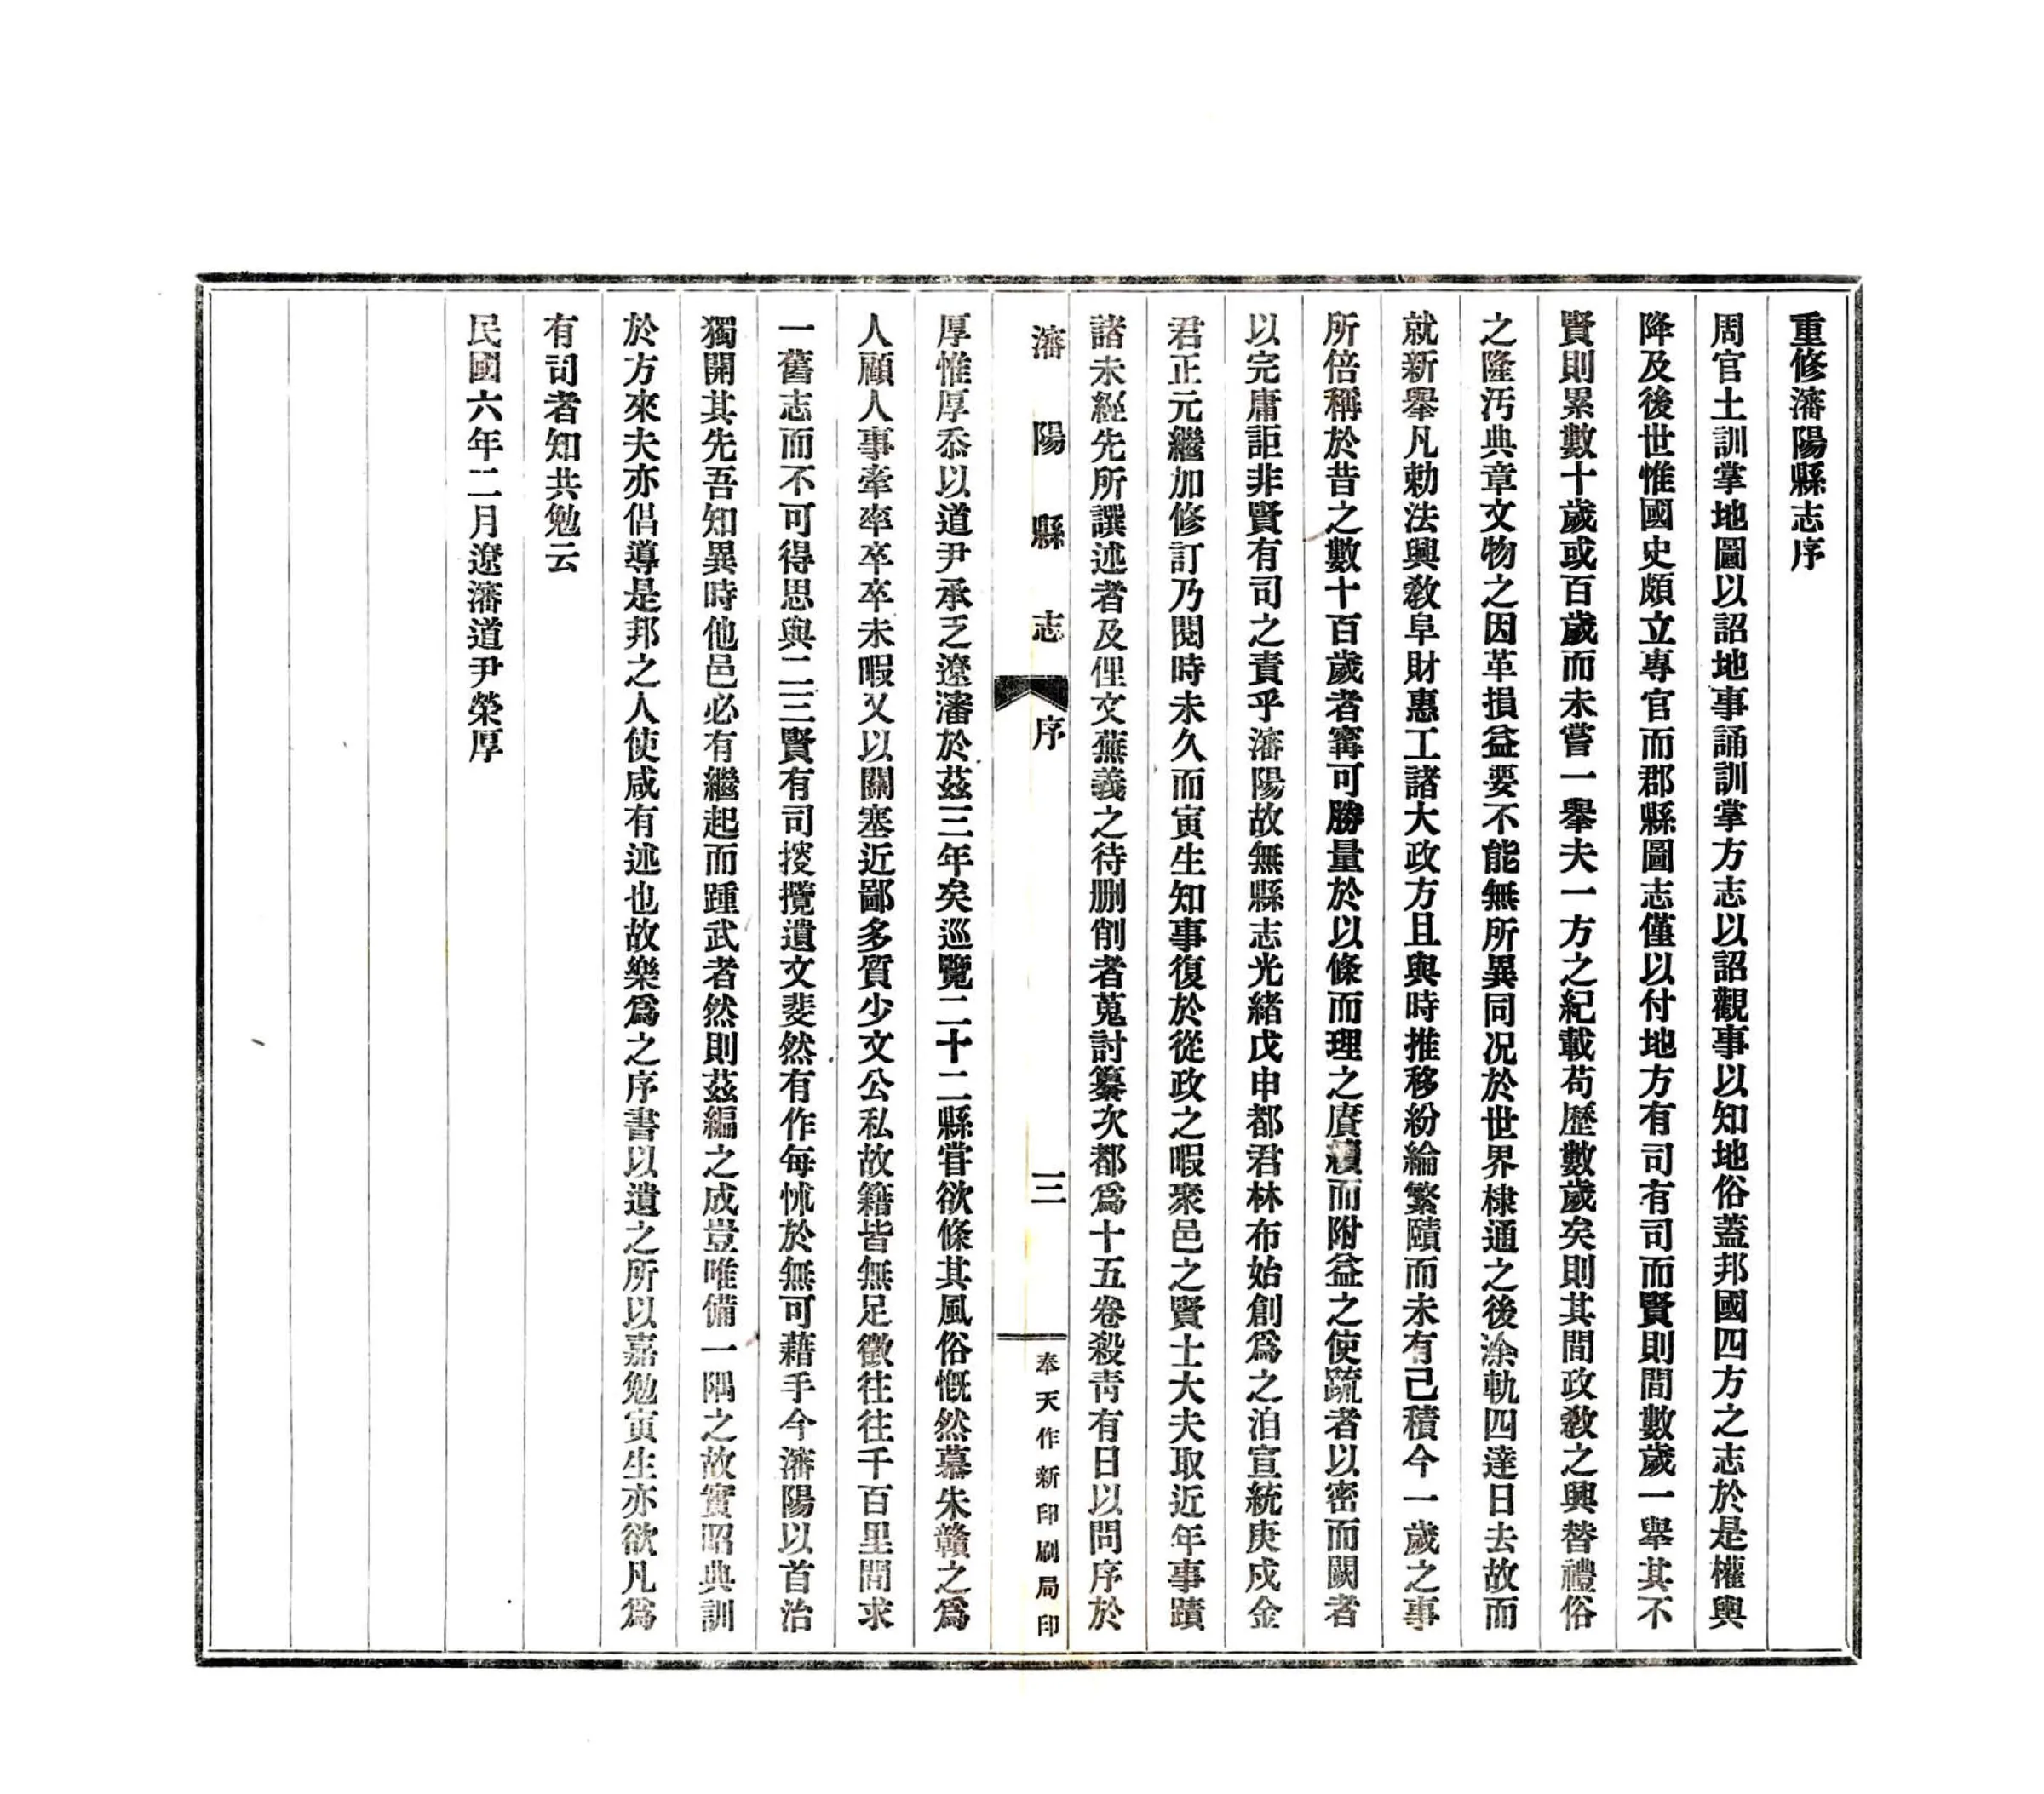 重修瀋陽縣志序
周官土訓掌地圖以詔地事誦訓掌方志以詔觀事以知地俗蓋邦國四方之志於是權輿
降及後世惟國史頗立專官而郡縣圖志僅以付地方有司有司而賢則間數歲一舉其不
賢則累數十歲或百歲而未嘗一舉夫一方之紀載苟歷數歲矣則其間政教之興替禮俗
之隆污典章文物之因革損益要不能無所異同况於世界棣通之後涂軌四達日去故而
就新舉凡勅法興教阜財惠工諸大政方且與時推移紛綸繁賾而未有已積今一歲之事
所倍稱於昔之數十百歲者寗可勝量於以條而理之賡續而附益之使疏者以密而闕者
以完庸詎非賢有司之責乎瀋陽故無縣志光緒戊申都君林布始創爲之洎宣統庚戌金
君正元繼加修訂乃閱時未久而寅生知事復於從政之暇聚邑之賢士大夫取近年事蹟
諸未經先所譔述者及俚文蕪義之待删削者蒐討纂次都爲十五卷殺青有日以問序於
瀋陽縣志 序 三 奉天作新印刷局印
厚惟厚忝以道尹承乏遼瀋於茲三年矣巡覽二十二縣嘗欲條其風俗慨然慕朱贛之爲
人顧人事牽率卒卒未暇又以關塞近鄙多質少文公私故籍皆無足徵往往千百里間求
一舊志而不可得思與二三賢有司挍攬遺文斐然有作每怵於無可藉手今瀋陽以首治
獨開其先吾知異時他邑必有繼起而踵武者然則茲編之成豈唯備一隅之故實昭典訓
於方來夫亦倡導是邦之人使咸有述也故樂爲之序書以遺之所以嘉勉寅生亦欲凡爲
有司者知共勉云
民國六年二月遼瀋道尹榮厚